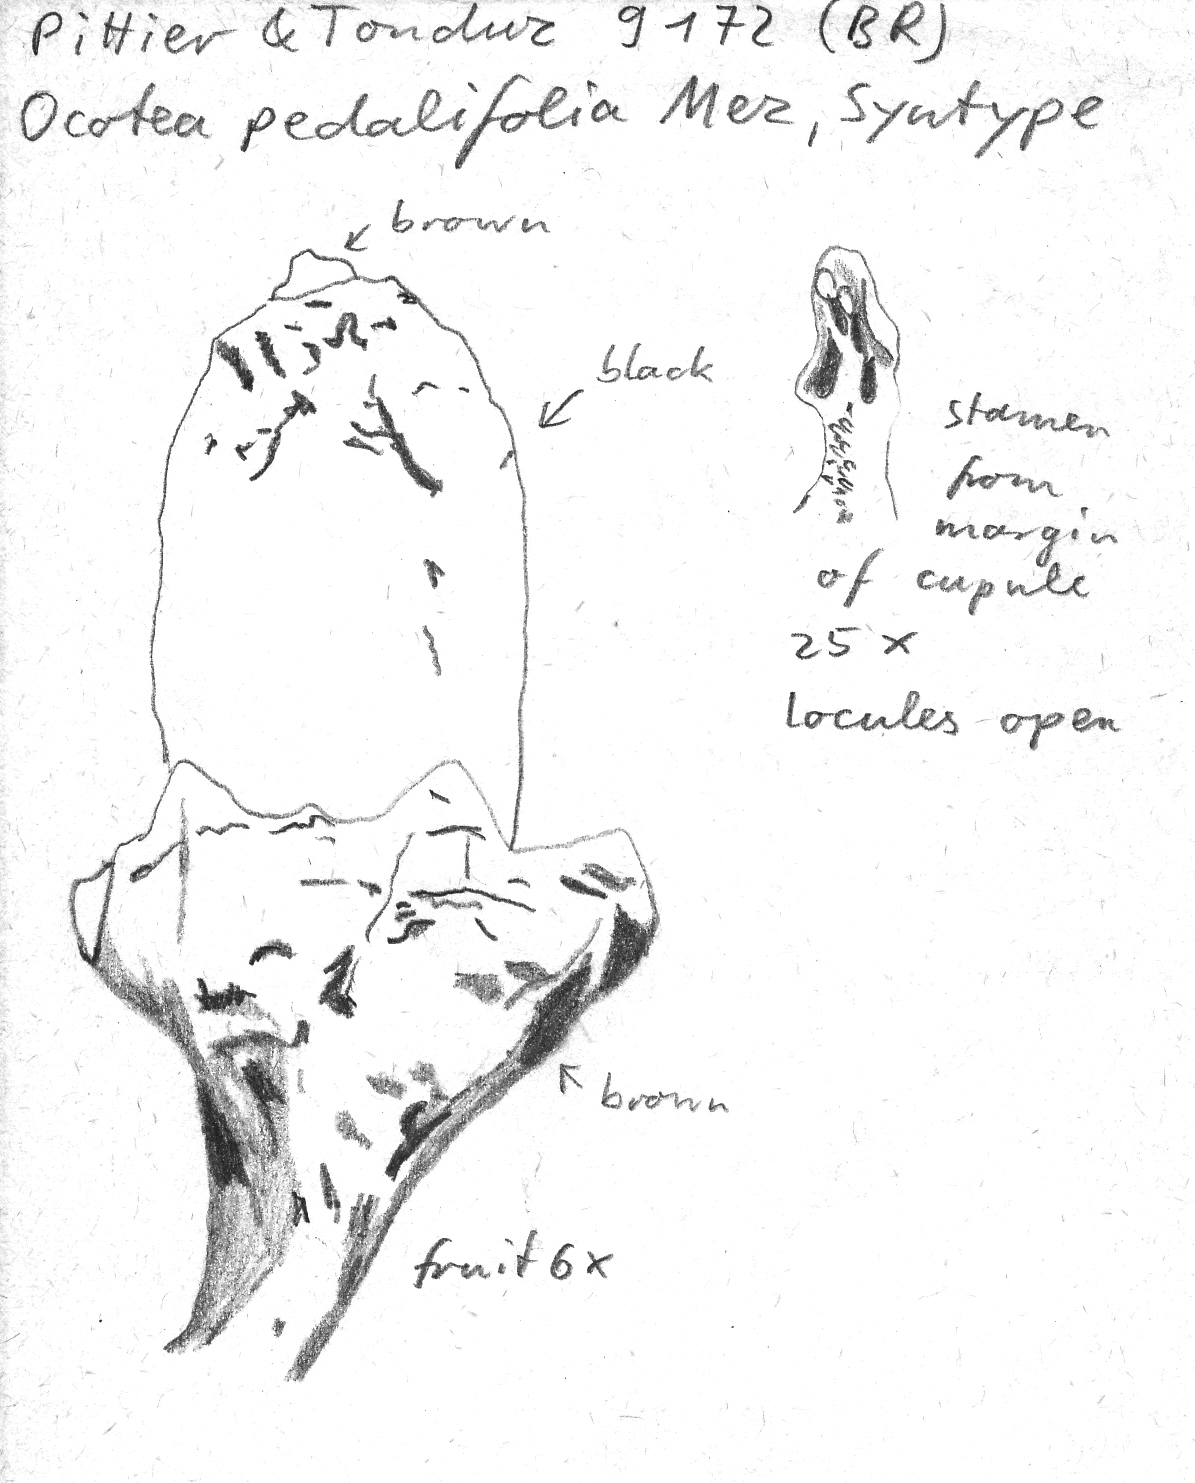 Pittier & Tonduz 9172 (BR)
Ocotea pedalifolia Mez, Syntype
brown
black
stamen
from
margin
of cupule
25 x
locules open
brown
fruit 6 x